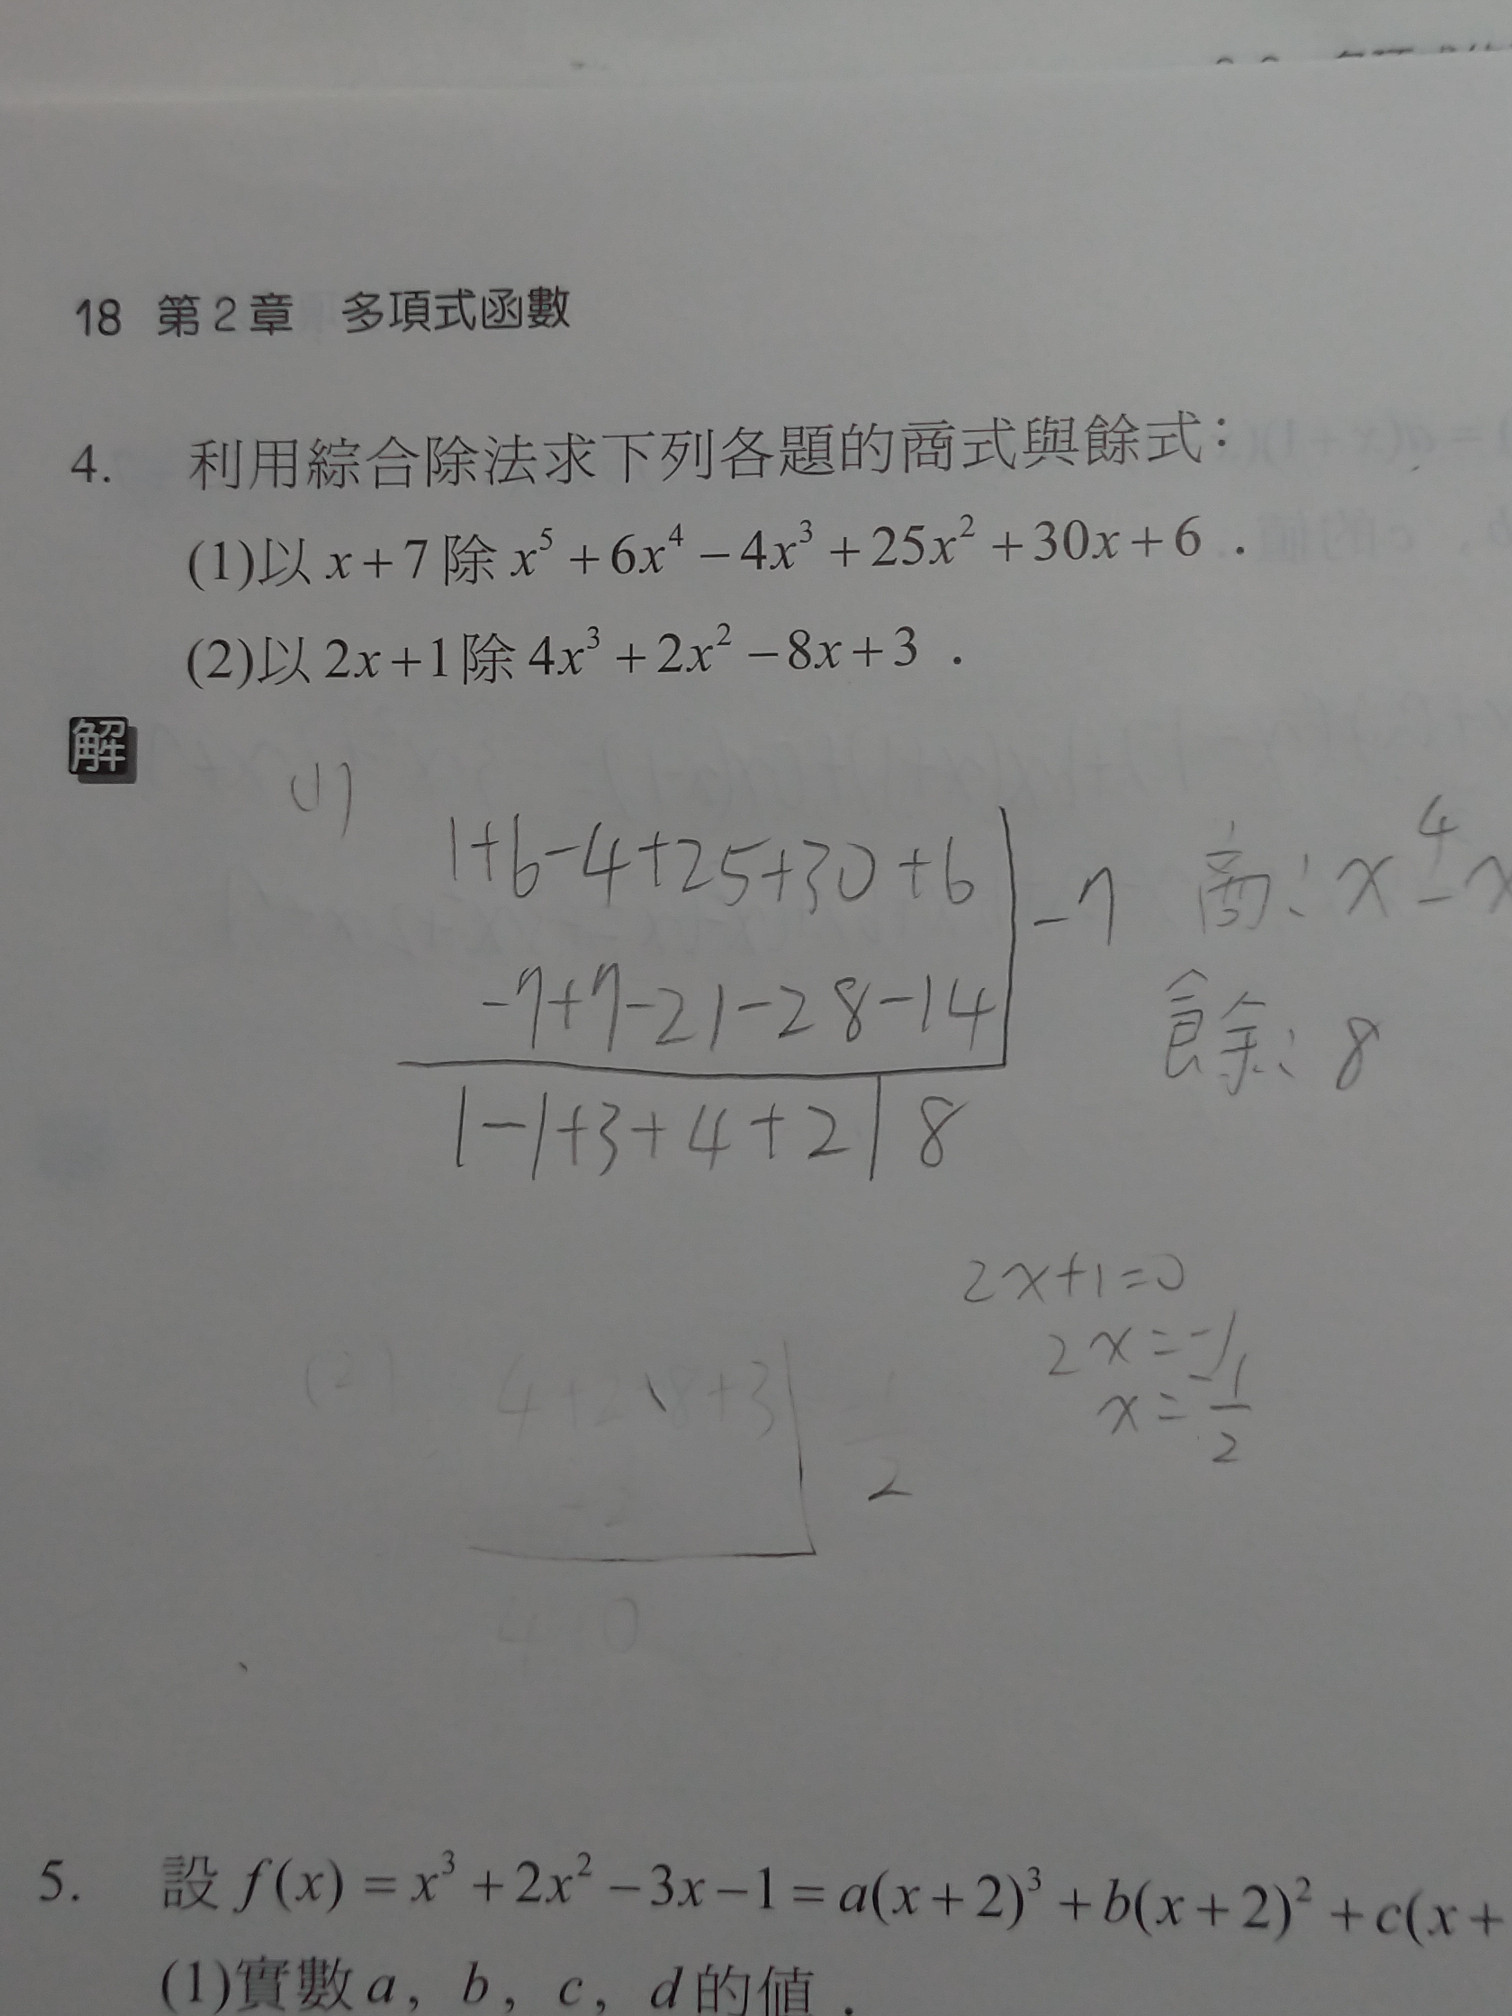 18 第2章 多項式函數
4. 利用綜合除法求下列各題的商式與餘式：
(1)以 x+7 除 x⁵+6x⁴−4x³+25x²+30x+6．
(2)以 2x+1 除 4x³+2x²−8x+3．
解
(1)
1+6-4+25+30+6 -7 商: x⁴-x
-7+7-21-28-14
餘: 8
1-1+3+4+2 8
2x+1=0
2x=-1
x=-1/2
(2) 4+2-8+3
2
4 0
5. 設 f(x)=x³+2x²−3x−1=a(x+2)³+b(x+2)²+c(x+
(1)實數 a，b，c，d 的值．